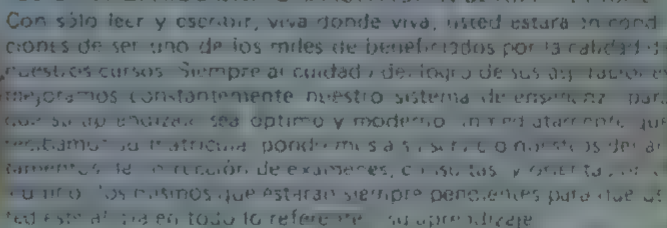 Con sólo leer y escribir, viva donde viva, usted estará en condi
ciones de ser uno de los miles de beneficiados por la calidad d
nuestros cursos. Siempre al cuidado del logro de sus aspiraciones
mejoramos constantemente nuestro sistema de enseñanza para
que su aprendizaje sea óptimo y moderno. Inmediatamente que
recibamos su matrícula pondremos a su servicio nuestros depar
tamentos de corrección de exámenes, consultas y
los mismos que estarán siempre pendientes para que us
ted esté al día en todo lo referente a su aprendizaje